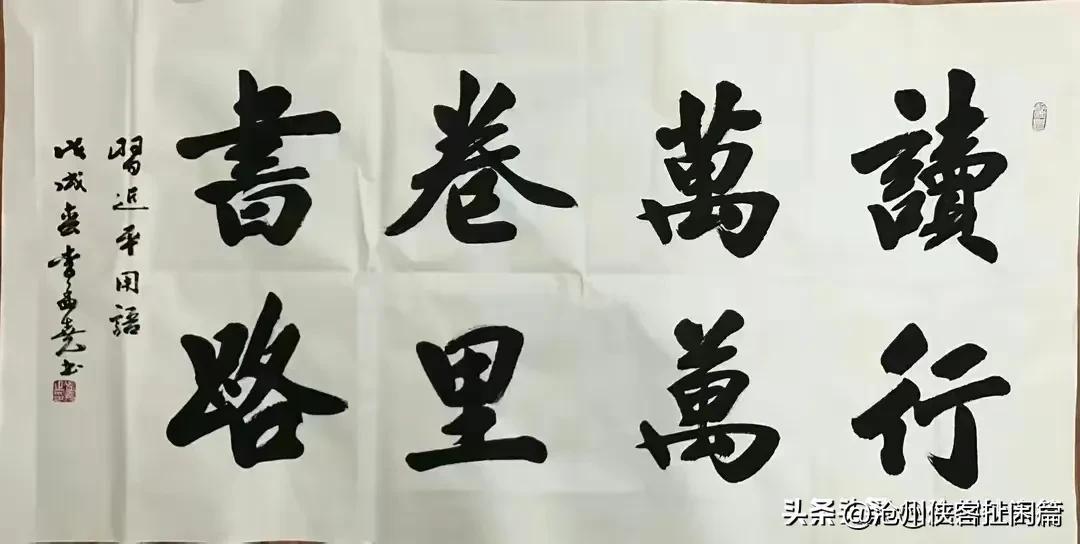 讀萬卷書
行萬里路
習近平用語
戊戌 李 书
头条 @沧州侠客扯困篇